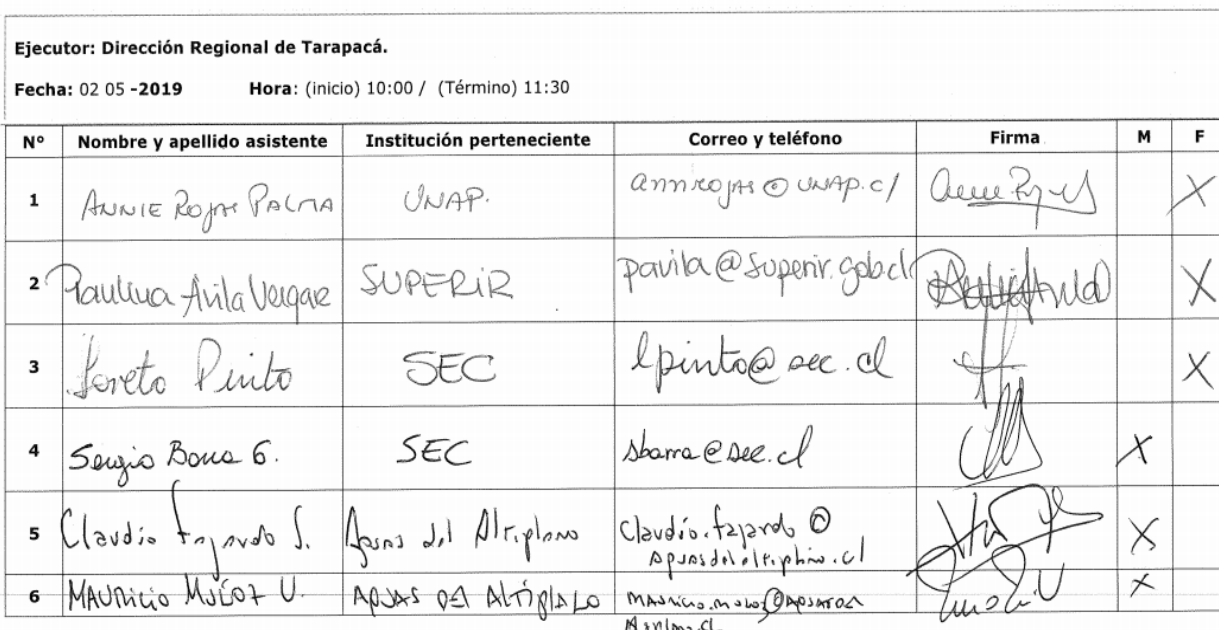 Ejecutor: Dirección Regional de Tarapacá.
Fecha: 02 05 -2019 Hora: (inicio) 10:00 / (Término) 11:30
Nº Nombre y apellido asistente Institución perteneciente Correo y teléfono Firma M F
1 ANNIE ROJAS PALMA UNAP. annrojas@UNAP.cl X
2 Paulina Avila Vergara SUPERIR pavila@superir.gob.cl X
3 Loreto Pinto SEC lpinto@sec.cl X
4 Sergio Barra G. SEC sbarra@sec.cl X
5 Claudio Fajardo S. Aguas del Altiplano Claudio.fajardo@
aguasdelaltiplano.cl X
6 MAURICIO MUÑOZ U. AGUAS DEL ALTIPLANO X